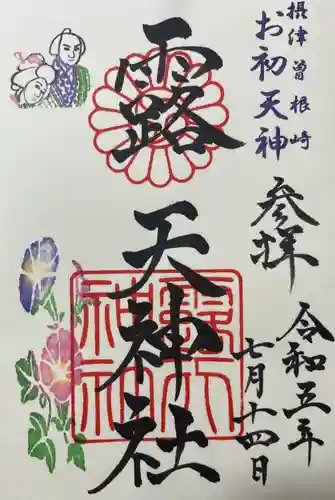 摂津曽根崎
お初天神
参拝
令和五年
七月十四日
露
天神社